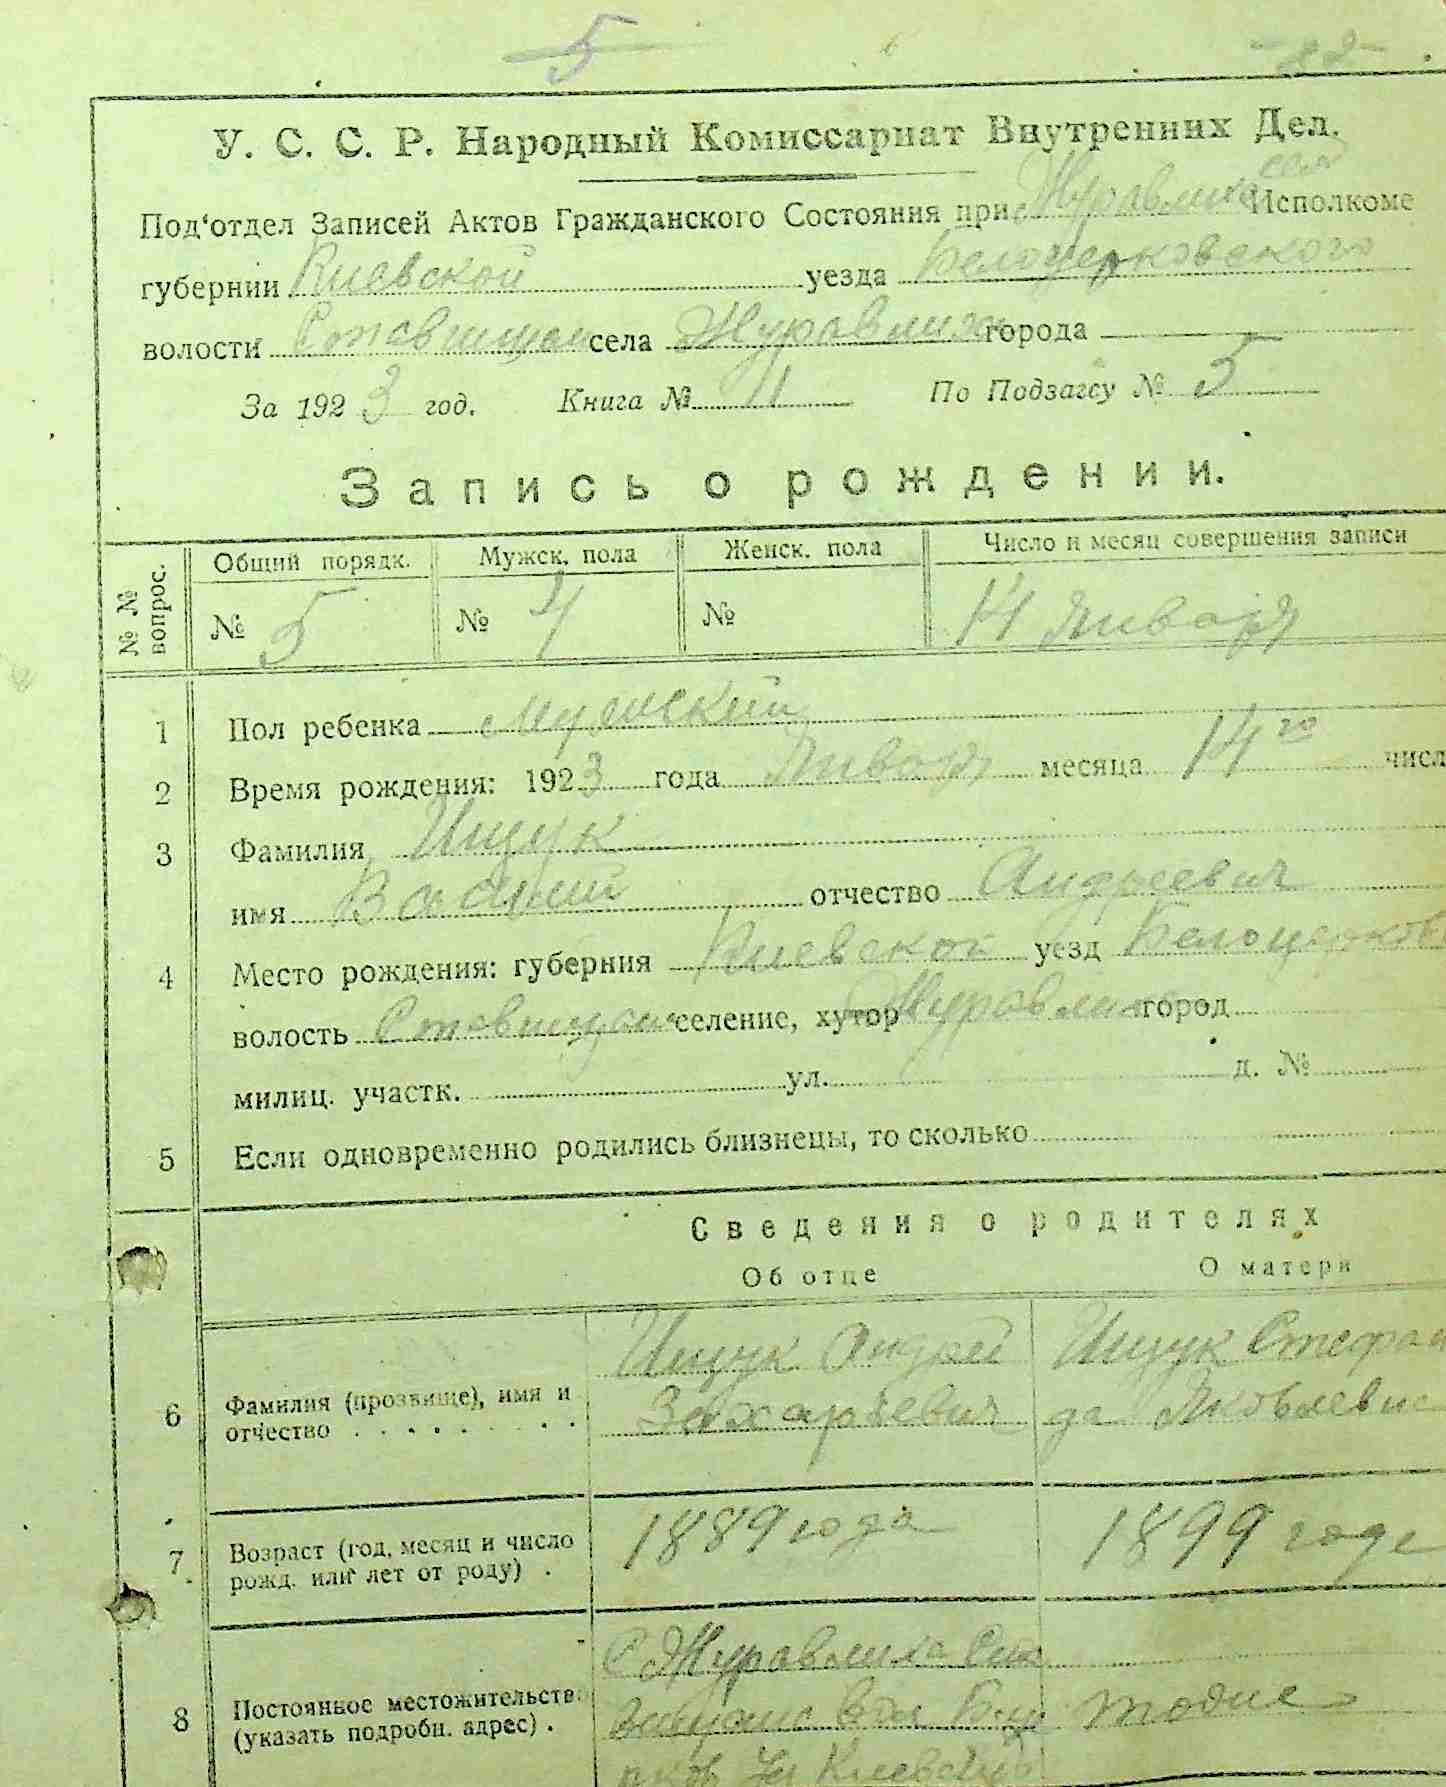 5
У. С. С. Р. Народный Комиссариат Внутренних Дел.
Под‘отдел Записей Актов Гражданского Состояния при Журавлика Исполкоме
губернии Киевской уезда Белоцерковского
волости села города
За 1923 год. Книга № 11 По Подзагсу № 5
Запись о рождении.
№ № вопрос. Общий порядк. Мужск. пола Женск. пола Число и месяц совершения записи
№ 5 № 4 № 14 Января
1 Пол ребенка Мужский
2 Время рождения: 1923 года Январ месяца 14 го числ
3 Фамилия Ищук
имя Василий отчество Андреевич
4 Место рождения: губерния Киевской уезд Белоцерков
волость селение, хутор город
милиц. участк. ул. д. №
5 Если одновременно родились близнецы, то сколько
Сведения о родителях
Об отце О матери
6 Фамилия (прозвище), имя и отчество Ищук Андрей Ищук Стефани
Захарьевич да Яковлевна
7 Возраст (год, месяц и число рожд. или лет от роду) . 1889 года 1899 года
8 Постоянное местожительств (указать подробн. адрес) . С Журавлика
вол тоже
Киевской